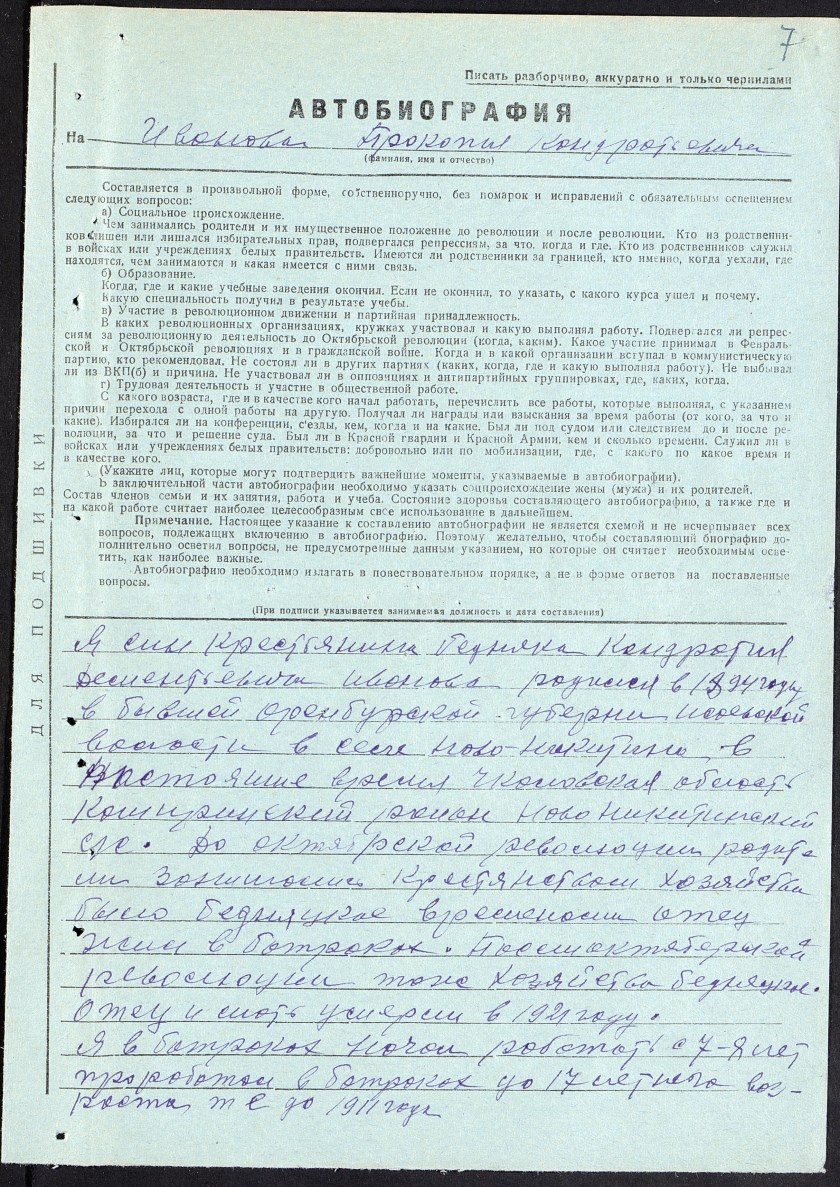 7
Писать разборчиво, аккуратно и только чернилами
АВТОБИОГРАФИЯ
На Иванова Прокопия Кондратьевича
(фамилия, имя и отчество)
Составляется в произвольной форме, собственноручно, без помарок и исправлений с обязательным освещением
следующих вопросов:
а) Социальное происхождение.
Чем занимались родители и их имущественное положение до революции и после революции. Кто из родственни-
ков лишен или лишался избирательных прав, подвергался репрессиям, за что, когда и где. Кто из родственников служил
в войсках или учреждениях белых правительств. Имеются ли родственники за границей, кто именно, когда уехали, где
находятся, чем занимаются и какая имеется с ними связь.
б) Образование.
Когда, где и какие учебные заведения окончил. Если не окончил, то указать, с какого курса ушел и почему.
Какую специальность получил в результате учебы.
в) Участие в революционном движении и партийная принадлежность.
В каких революционных организациях, кружках участвовал и какую выполнял работу. Подвергался ли репрес-
сиям за революционную деятельность до Октябрьской революции (когда, каким). Какое участие принимал в Февраль-
ской и Октябрьской революциях и в гражданской войне. Когда и в какой организации вступал в коммунистическую
партию, кто рекомендовал. Не состоял ли в других партиях (каких, когда, где и какую выполнял работу). Не выбывал
ли из ВКП(б) и причина. Не участвовал ли в оппозициях и антипартийных группировках, где, каких, когда.
г) Трудовая деятельность и участие в общественной работе.
С какого возраста, где и в качестве кого начал работать, перечислить все работы, которые выполнял, с указанием
причин перехода с одной работы на другую. Получал ли награды или взыскания за время работы (от кого, за что и
какие). Избирался ли на конференции, с'езды, кем, когда и на какие. Был ли под судом или следствием до и после ре-
волюции, за что и решение суда. Был ли в Красной гвардии и Красной Армии, кем и сколько времени. Служил ли в
войсках или учреждениях белых правительств: добровольно или по мобилизации, где, с какого по какое время и
в качестве кого.
(Укажите лиц, которые могут подтвердить важнейшие моменты, указываемые в автобиографии).
В заключительной части автобиографии необходимо указать соцпроисхождение жены (мужа) и их родителей.
Состав членов семьи и их занятия, работа и учеба. Состояние здоровья составляющего автобиографию, а также где и
на какой работе считает наиболее целесообразным свое использование в дальнейшем.
Примечание. Настоящее указание к составлению автобиографии не является схемой и не исчерпывает всех
вопросов, подлежащих включению в автобиографию. Поэтому желательно, чтобы составляющий биографию до-
полнительно осветил вопросы, не предусмотренные данным указанием, но которые он считает необходимым осве-
тить, как наиболее важные.
Автобиографию необходимо излагать в повествовательном порядке, а не в форме ответов на поставленные
вопросы.
(При подписи указывается занимаемая должность и дата составления)
ДЛЯ ПОДШИВКИ
Я сын Крестьянина бедняка Кондратия
Дементьевича Иванова родился в 1894 году
в бывшей оренбургской губерни
волости в селе Ново-Никитина в
Настояше время Чкаловская область
район Ново Никитинский
с/с. До октябрской революции родите
ли занимались Крестянством Хозяйства
было бедняцкое временоми Отец
жил в батраках. После октяберской
революции тоже хозяйства бедняцкая.
Отец и мать умерли в 1921 году.
Я в батраках начал работать с 7-Я лет
проработал в батраках до 17 летнего воз-
роста т е до 1911 года